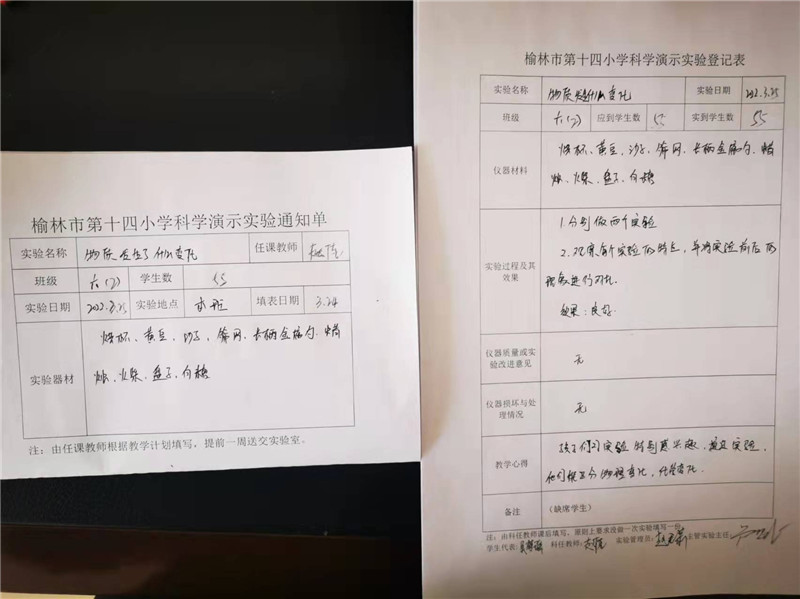 榆林市第十四小学科学演示实验通知单
实验名称 物质发生了什么变化 任课教师
班级 六(2) 学生数 55
实验日期 2022.3.25 实验地点 本班 填表日期 3.24
实验器材
烧杯、黄豆、沙子、筛网、长柄金属勺、蜡
烛、火柴、盘子、白糖
注：由任课教师根据教学计划填写，提前一周送交实验室。
榆林市第十四小学科学演示实验登记表
实验名称 物质发生了什么变化 实验日期 2022.3.25
班级 六(2) 应到学生数 55 实到学生数 55
仪器材料
烧杯、黄豆、沙子、筛网、长柄金属勺、蜡
烛、火柴、盘子、白糖
实验过程及其效果
1.分别做两个实验
2.观察每个实验的特点，并将实验前后的
现象进行对比.
效果：良好
仪器质量或实验改进意见 无
仪器损坏与处理情况 无
教学心得
孩子们对实验特别感兴趣，通过实验，
他们能区分物理变化，化学变化.
备注 (缺席学生)
注：由科任教师课后填写，原则上要求没做一次实验填写一份
学生代表： 科任教师： 实验管理员： 主管实验主任：